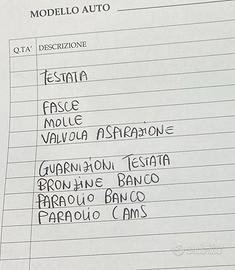 MODELLO AUTO
Q.TA' DESCRIZIONE
TESTATA
FASCE
MOLLE
VALVOLA ASPIRAZIONE
GUARNIZIONI TESTATA
BRONZINE BANCO
PARAOLIO BANCO
PARAOLIO CAMS
subito